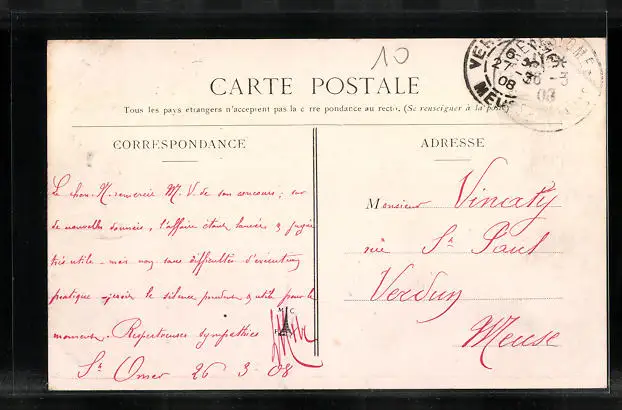 10
CARTE POSTALE
Tous les pays étrangers n'acceptent pas la c rre pondance au recto. (Se renseigner à la poste
CORRESPONDANCE
ADRESSE
Le chan. M. remercie M. V. de son concours; sur
de nouvelles données, l'affaire étant lancée, & jugée
très utile - mais non sans difficultés d'exécution
pratique - le silence prudent & utile pour le
moment. Respectueuses sympathies
St Omer 26 3 08
Monsieur Vincaty
rue St Paul
Verdun
Meuse
VER
MEUSE
27 -3
08